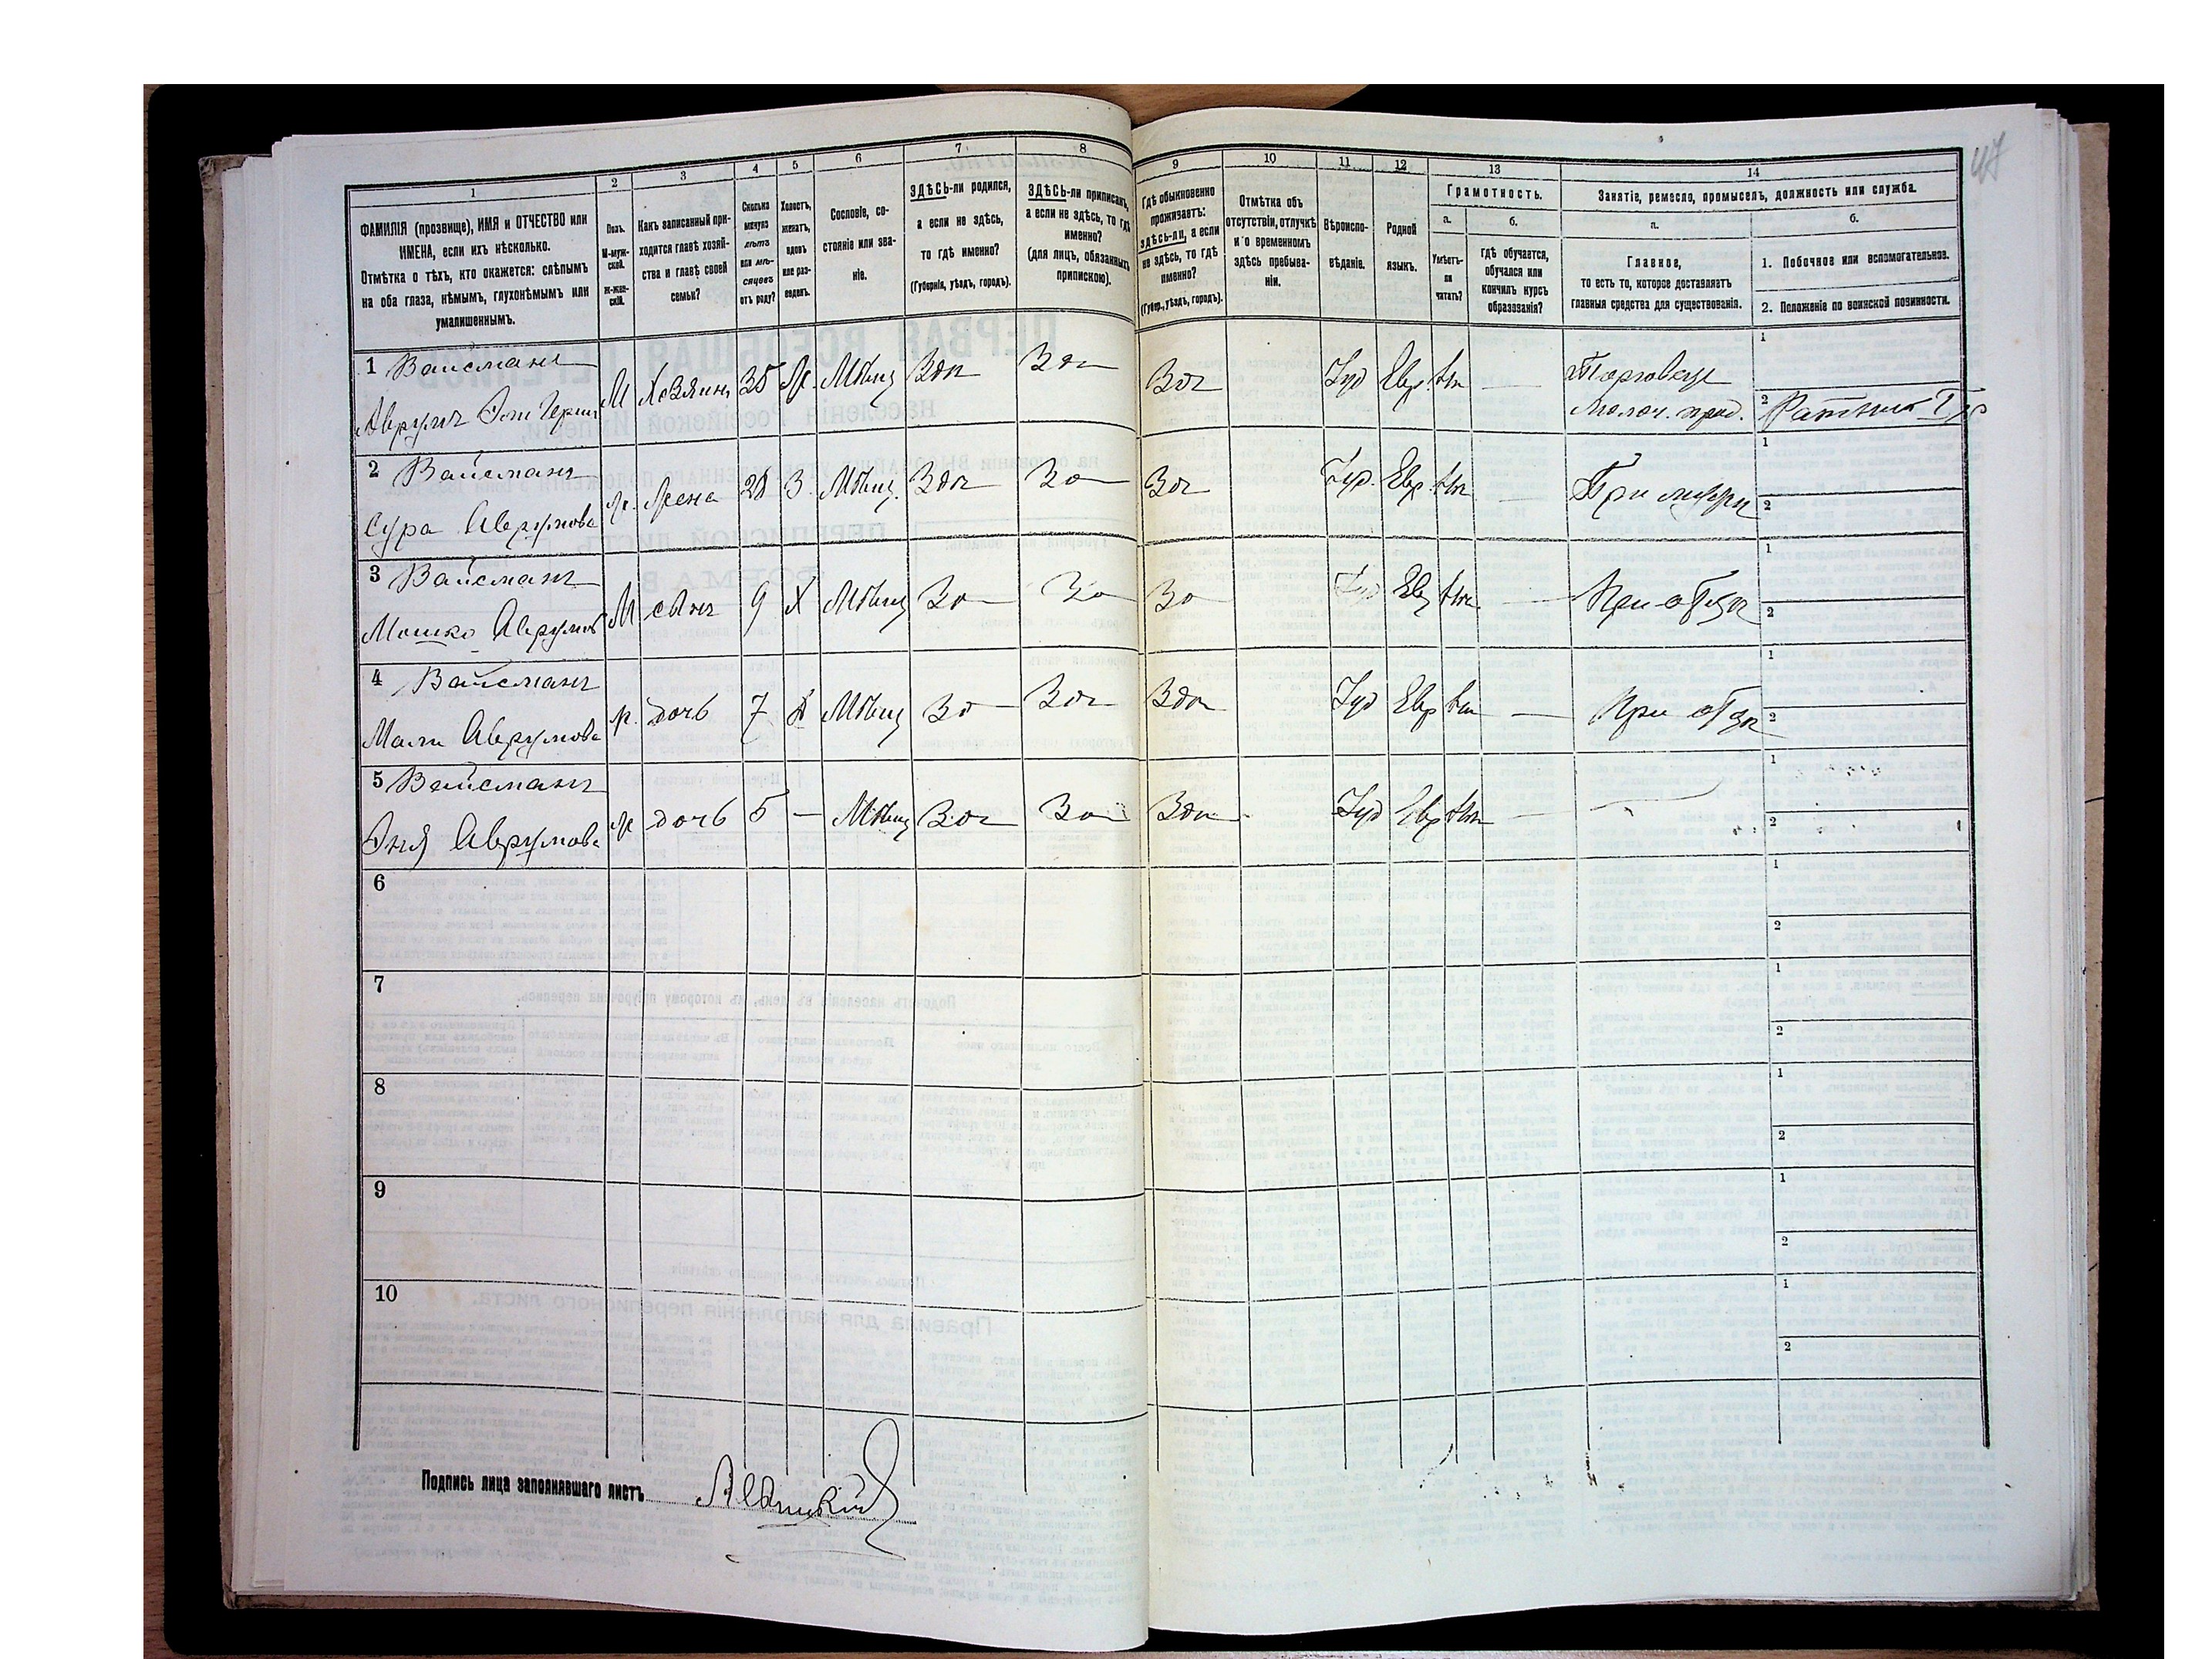 47
1
2
3
4
5
6
7
8
ФАМИЛІЯ (прозвище), ИМЯ и ОТЧЕСТВО или
ИМЕНА, если ихъ нѣсколько.
Отмѣтка о тѣхъ, кто окажется: слѣпымъ
на оба глаза, нѣмымъ, глухонѣмымъ или
умалишеннымъ.
Полъ.
М-муж-
ской.
Ж-жен-
скій.
Какъ записанный при-
ходится главѣ хозяй-
ства и главѣ своей
семьи?
Сколько
минуло
лѣтъ
или мѣ-
сяцевъ
отъ роду?
Холостъ,
женатъ,
вдовъ
или раз-
веденъ.
Сословіе, со-
стояніе или зва-
ніе.
ЗДѢСЬ-ли родился,
а если не здѣсь,
то гдѣ именно?
(Губернія, уѣздъ, городъ).
ЗДѢСЬ-ли приписанъ,
а если не здѣсь, то гдѣ
именно?
(для лицъ, обязанныхъ
припискою).
9
10
11
12
13
14
Гдѣ обыкновенно
проживаетъ:
здѣсь-ли, а если
не здѣсь, то гдѣ
именно?
(Губерн., уѣздъ, городъ).
Отмѣтка объ
отсутствіи, отлучкѣ
и о временномъ
здѣсь пребыва-
ніи.
Вѣроиспо-
вѣданіе.
Родной
языкъ.
Грамотность.
а.
б.
Умѣетъ-
ли
читать?
гдѣ обучается,
обучался или
кончилъ курсъ
образованія?
Занятіе, ремесло, промыселъ, должность или служба.
а.
б.
Главное,
то есть то, которое доставляетъ
главныя средства для существованія.
1. Побочное или вспомогательное.
2. Положеніе по воинской повинности.
1 Вайсманъ
Аврумъ М Хозяинъ 35 Ж. Мѣщ Зд Зд Зд Іуд Евр. Торговецъ
молоч. прод.
1
2 Ратникъ
2 Вайсманъ
Сура Аврумова ж. жена 28 З. Мѣщ. Зд Зд Зд Іуд. Евр. При мужѣ
1
2
3 Вайсманъ
Мошко Аврумов М сынъ 9 Х Мѣщ Зд Зд Зд Іуд Евр При отцѣ
1
2
4 Вайсманъ
Мали Аврумова ж. дочь 7 Мѣщ Зд Зд Зд Іуд Евр При отцѣ
1
2
5 Вайсманъ
Эня Аврумова ж дочь 5 — Мѣщ Зд Зд Зд Іуд Евр
1
2
6
1
2
7
1
2
8
1
2
9
1
2
10
1
2
Подпись лица заполнявшаго листъ